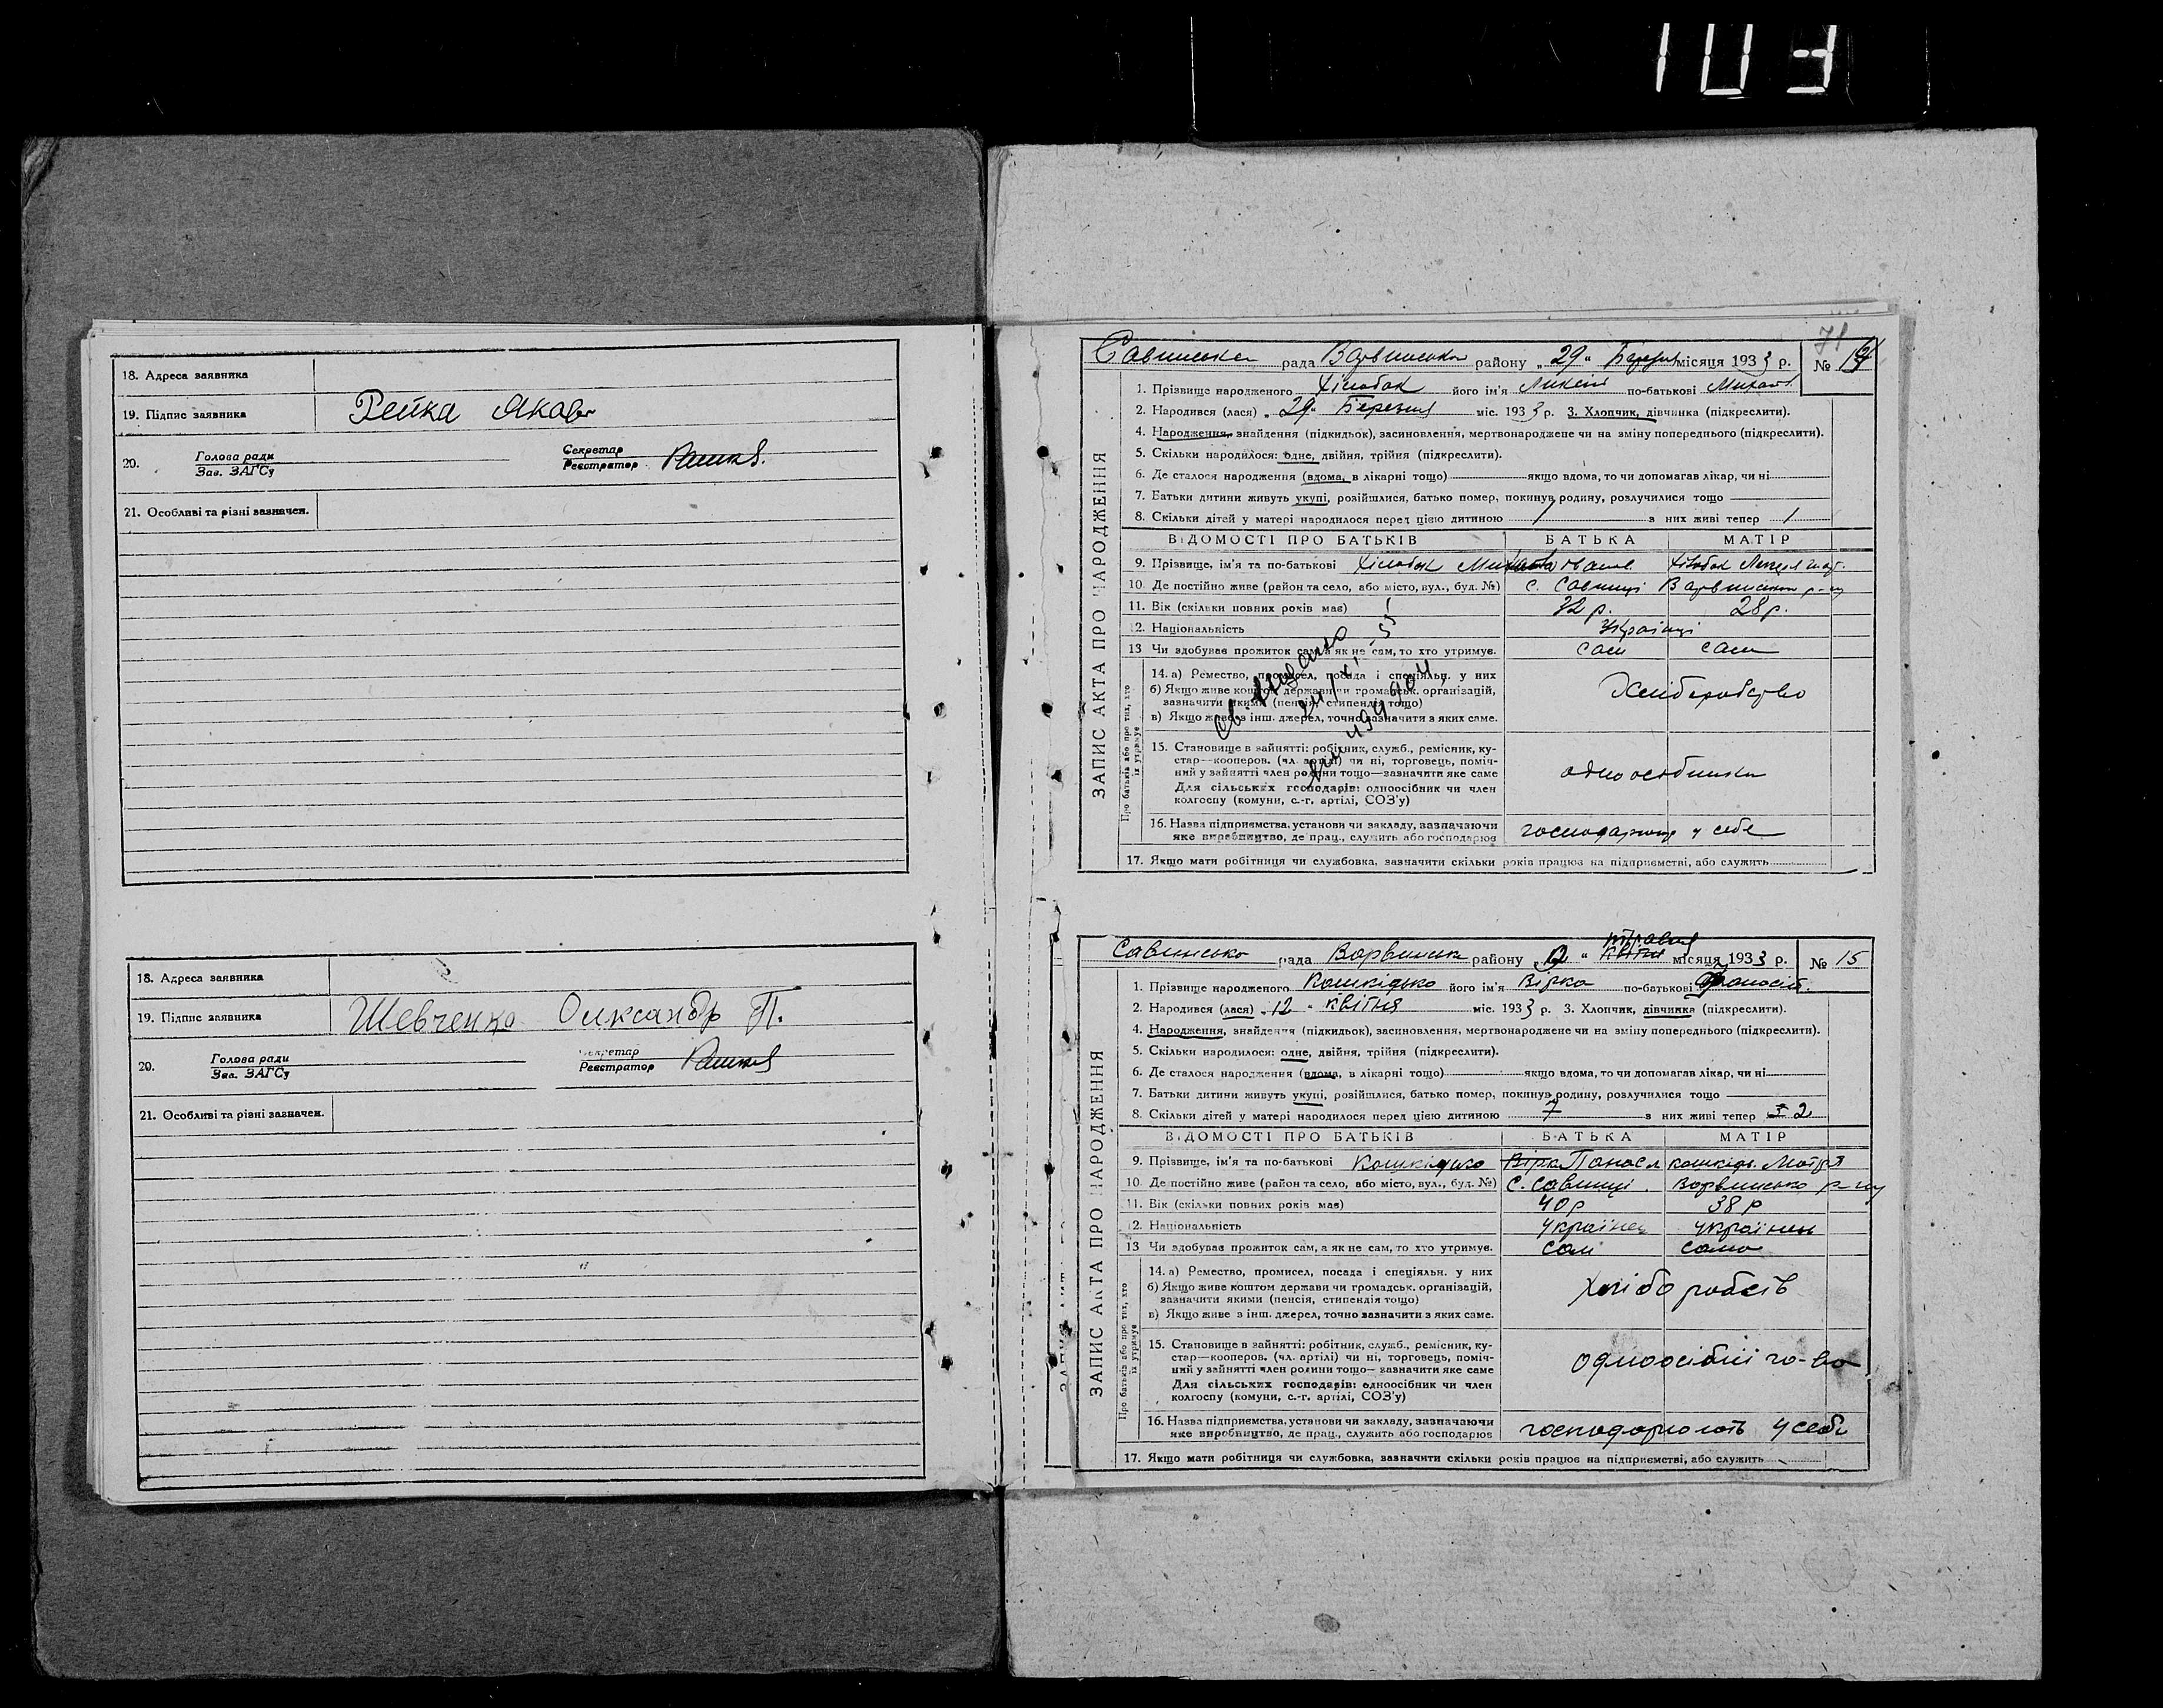 103
18. Адреса заявника
19. Підпис заявника Рейка Яков
20. Голова ради Секретар
Зав. ЗАГСу Реєстратор
21. Особливі та різні зазначен.
18. Адреса заявника
19. Підпис заявника Шевченко Олександр П.
20. Голова ради Секретар
Зав. ЗАГСу Реєстратор
21. Особливі та різні зазначен.
71
Савинська рада Варвинська району „29" Березня місяця 1933 р. № 14
ЗАПИС АКТА ПРО НАРОДЖЕННЯ
1. Прізвище народженого його ім'я по-батькові
2. Народився (лася) „29" Березня міс. 1933 р. 3. Хлопчик, дівчинка (підкреслити).
4. Народження, знайдення (підкидьок), засиновлення, мертвонароджене чи на зміну попереднього (підкреслити).
5. Скільки народилося: одне, двійня, трійня (підкреслити).
6. Де сталося народження (вдома, в лікарні тощо) якщо вдома, то чи допомагав лікар, чи ні
7. Батьки дитини живуть укупі, розійшлися, батько помер, покинув родину, розлучилися тощо
8. Скільки дітей у матері народилося перед цією дитиною 1 з них живі тепер 1
ВІДОМОСТІ ПРО БАТЬКІВ БАТЬКА МАТІР
9. Прізвище, ім'я та по-батькові
10. Де постійно живе (район та село, або місто, вул., буд. №) с. Савинці Варвинськ р-ну
11. Вік (скільки повних років має) 32 р. 28 р.
12. Національність Українці
13 Чи здобуває прожиток сам, а як не сам, то хто утримує. сам сама
Про батьків або про тих, хто їх утримує
14. а) Ремество, промисел, посада і спеціяльн. у них
б) Якщо живе коштом держави чи громадськ. організацій,
зазначити якими (пенсія, стипендія тощо)
в) Якщо живе з інш. джерел, точно зазначити з яких саме.
Хліборобство
15. Становище в зайнятті: робітник, служб., ремісник, ку-
стар—кооперов. (чл. артілі) чи ні, торговець, поміч-
ний у зайнятті член родини тощо—зазначити яке саме
Для сільських господарів: одноосібник чи член
колгоспу (комуни, с.-г. артілі, СОЗ'у)
одноосібники
16. Назва підприємства, установи чи закладу, зазначаючи
яке виробництво, де прац., служить або господарює
у себе
17. Якщо мати робітниця чи службовка, зазначити скільки років працює на підприємстві, або служить
Савинська рада Варвинськ району травня
квітня місяця 1933 р. № 15
ЗАПИС АКТА ПРО НАРОДЖЕННЯ
1. Прізвище народженого Кошкідько його ім'я Вірка по-батькові
2. Народився (лася) „12" квітня міс. 1933 р. 3. Хлопчик, дівчинка (підкреслити).
4. Народження, знайдення (підкидьок), засиновлення, мертвонароджене чи на зміну попереднього (підкреслити).
5. Скільки народилося: одне, двійня, трійня (підкреслити).
6. Де сталося народження (вдома, в лікарні тощо) якщо вдома, то чи допомагав лікар, чи ні
7. Батьки дитини живуть укупі, розійшлися, батько помер, покинув родину, розлучилися тощо
8. Скільки дітей у матері народилося перед цією дитиною 7 з них живі тепер 2
ВІДОМОСТІ ПРО БАТЬКІВ БАТЬКА МАТІР
9. Прізвище, ім'я та по-батькові Кошкідько Вірка Панасл кошкідь.
10. Де постійно живе (район та село, або місто, вул., буд. №) с. Савинці. Варвинсько р-ну
11. Вік (скільки повних років має) 40 р 38 р
12. Національність українец українка
13 Чи здобуває прожиток сам, а як не сам, то хто утримує. сам сама
Про батьків або про тих, хто їх утримує
14. а) Ремество, промисел, посада і спеціяльн. у них
б) Якщо живе коштом держави чи громадськ. організацій,
зазначити якими (пенсія, стипендія тощо)
в) Якщо живе з інш. джерел, точно зазначити з яких саме.
15. Становище в зайнятті: робітник, служб., ремісник, ку-
стар—кооперов. (чл. артілі) чи ні, торговець, поміч-
ний у зайнятті член родини тощо—зазначити яке саме
Для сільських господарів: одноосібник чи член
колгоспу (комуни, с.-г. артілі, СОЗ'у)
одноосібні го-ва
16. Назва підприємства, установи чи закладу, зазначаючи
яке виробництво, де прац., служить або господарює
господарюють у себе
17. Якщо мати робітниця чи службовка, зазначити скільки років працює на підприємстві, або служить